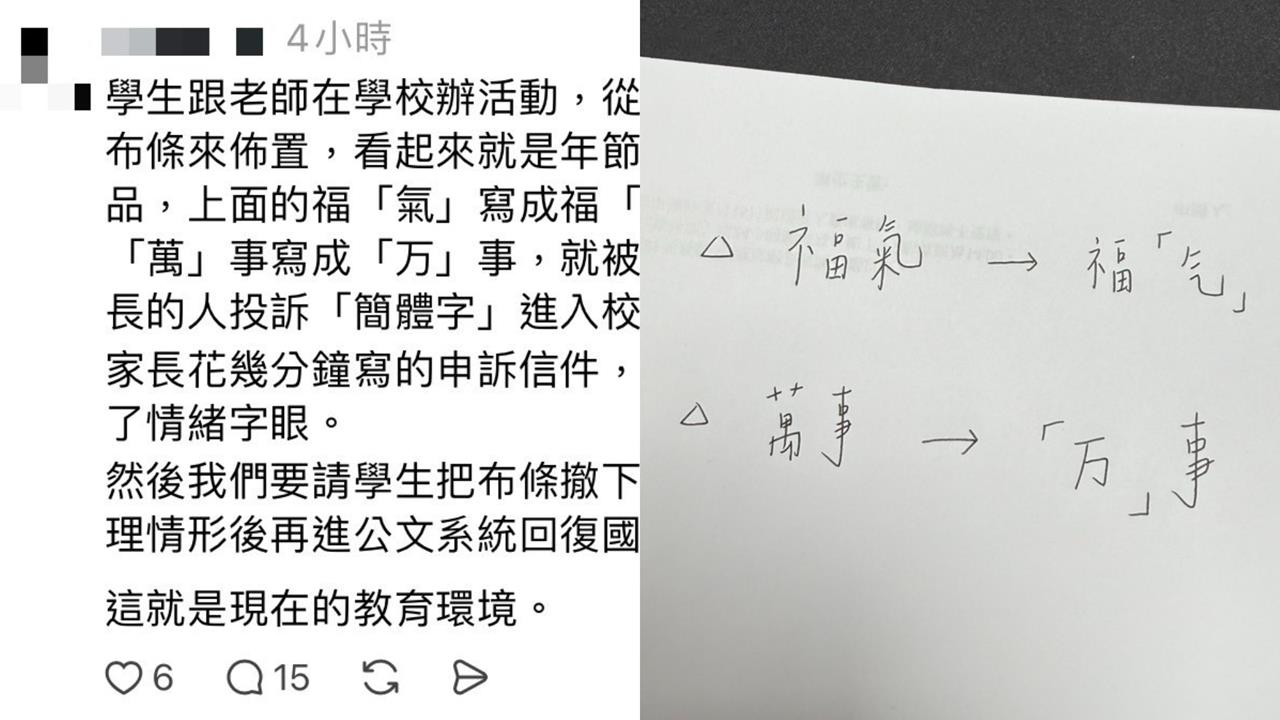 4小時
學生跟老師在學校辦活動，從
布條來佈置，看起來就是年節
品，上面的福「氣」寫成福「
「萬」事寫成「万」事，就被
長的人投訴「簡體字」進入校
家長花幾分鐘寫的申訴信件，
了情緒字眼。
然後我們要請學生把布條撤下
理情形後再進公文系統回復國
這就是現在的教育環境。
6 15
△ 福氣 → 福「气」
△ 萬事 → 「万」事